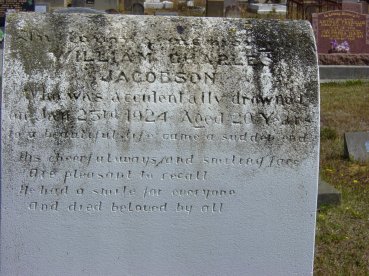 WILLIAM CHARLES
JACOBSON
Who was accidentally drowned
on Jan 25th 1924 Aged 20 Years
To a beautiful life came a sudden end
His cheerful ways, and smiling face
Are pleasant to recall
He had a smile for everyone
And died beloved by all